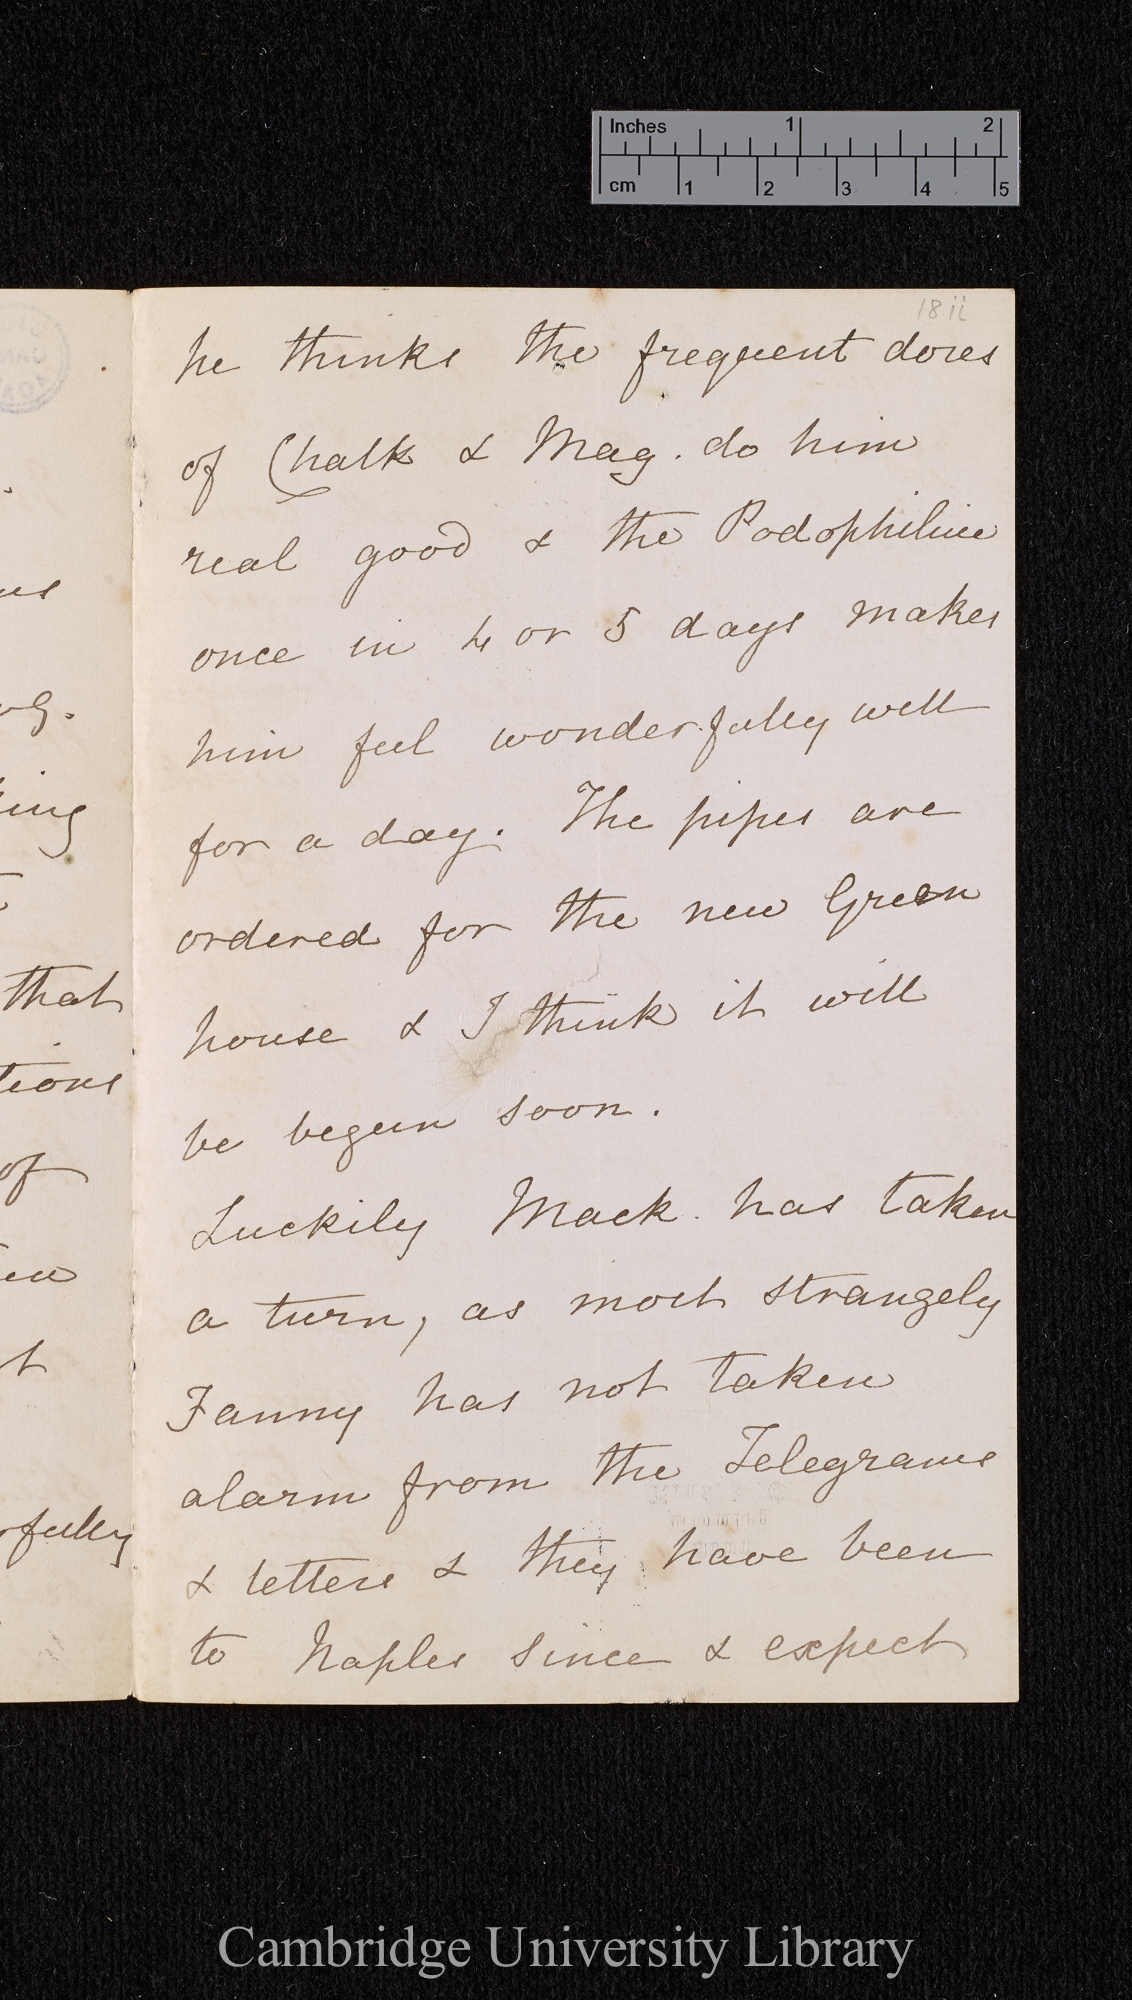 Inches 1 2
cm 1 2 3 4 5
18 ii
he thinks the frequent doses
of Chalk & Mag. do him
real good & the Podophiline
once in 4 or 5 days makes
him feel wonderfully well
for a day. The pipes are
ordered for the new Green
house & I think it will
be begun soon.
Luckily Mack. has taken
a turn, as most strangely
Fanny has not taken
alarm from the Telegrams
& letters & they have been
to Naples since & expect
that
tions
of
rfully
Cambridge University Library